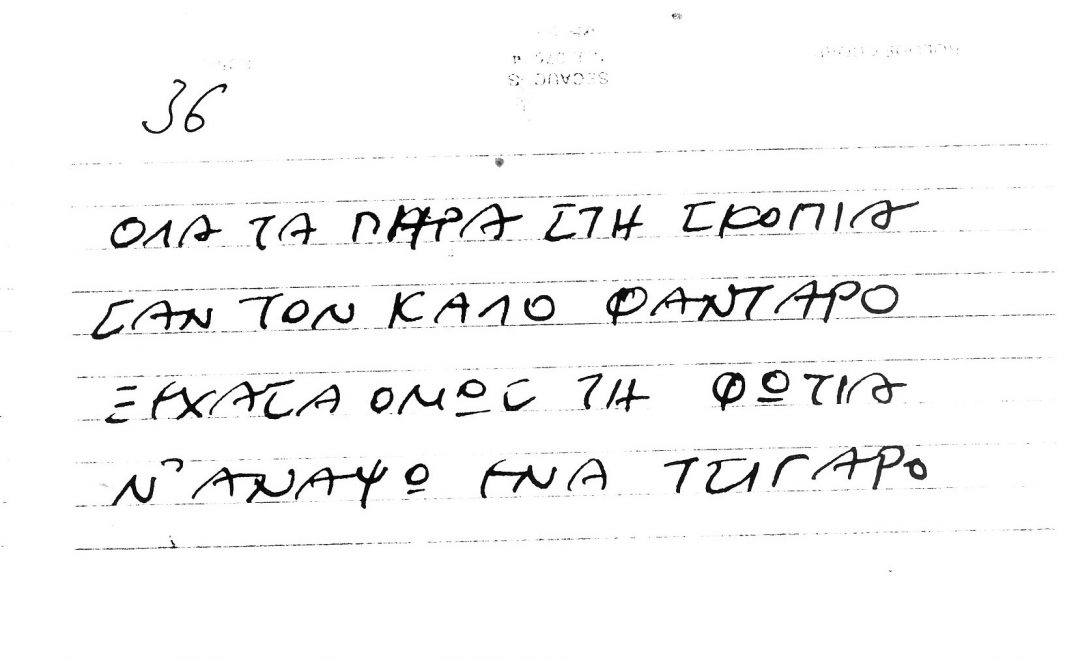 36
ΟΛΑ ΤΑ ΠΗΡΑ ΣΤΗ ΣΚΟΠΙΑ
ΣΑΝ ΤΟΝ ΚΑΛΟ ΦΑΝΤΑΡΟ
ΞΕΧΑΣΑ ΟΜΩΣ ΤΗ ΦΩΤΙΑ
Ν' ΑΝΑΨΩ ΕΝΑ ΤΣΙΓΑΡΟ